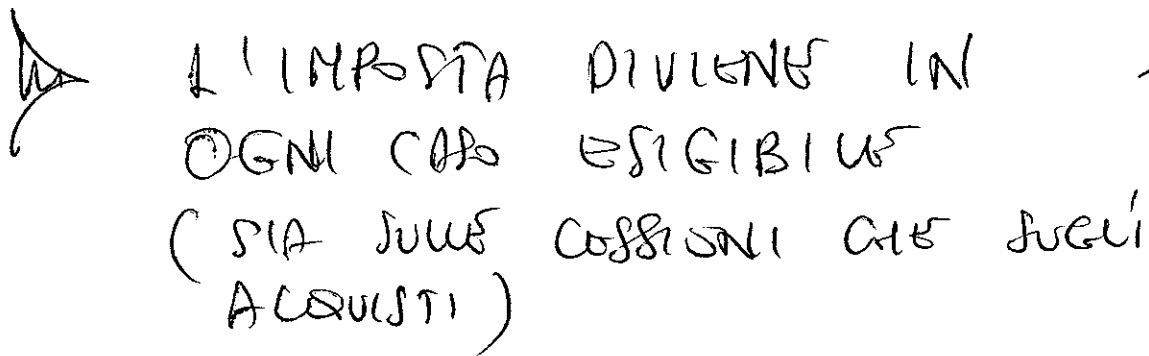 L'IMPOSTA DIVIENE IN
OGNI CASO ESIGIBILE
(SIA SULLE CESSIONI CHE SUGLI
ACQUISTI)